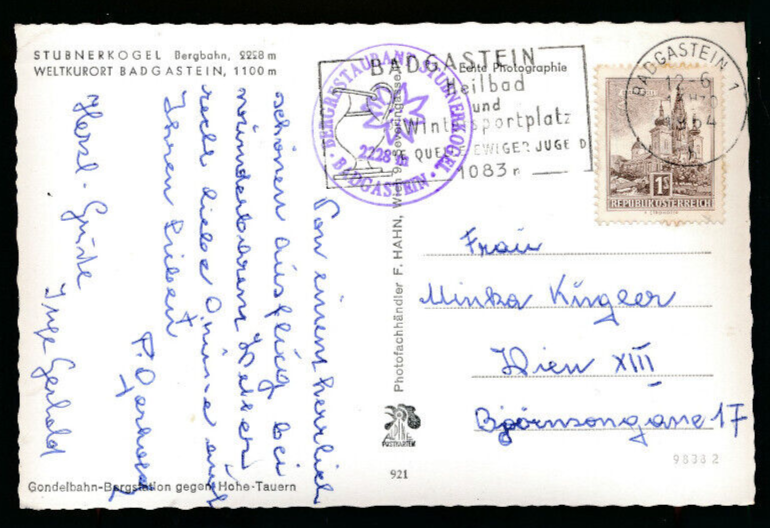 STUBNERKOGEL Bergbahn, 2228 m
WELTKURORT BADGASTEIN, 1100 m
Von einem herrlich
schönen Ausflug bei
wunderbarem Wetter
recht liebe Grüsse auch
Ihren Lieben
Herzl. Grüße
Inge Gerhold
BERGRESTAURANT STUBNERKOGEL
2228 m
BADGASTEIN
BADGASTEIN
Heilbad
und
Wintersportplatz
QUELL EWIGER JUGEND
1083 m
Echte Photographie
BADGASTEIN 1
12-6
1S
REPUBLIK ÖSTERREICH
Photofachhändler F. HAHN, Wien
Frau
Minka Kingler
Wien XIII
Björnsongasse 17
POSTKARTEN
98382
921
Gondelbahn-Bergstation gegen Hohe-Tauern